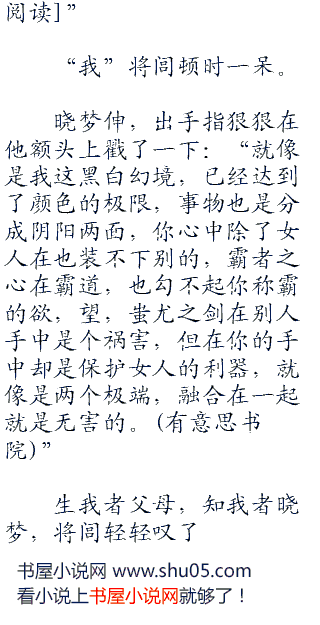 阅读]”
“我”将闾顿时一呆。
晓梦伸，出手指狠狠在
他额头上戳了一下：“就像
是我这黑白幻境，已经达到
了颜色的极限，事物也是分
成阴阳两面，你心中除了女
人在也装不下别的，霸者之
心在霸道，也勾不起你称霸
的欲，望，蚩尤之剑在别人
手中是个祸害，但在你的手
中却是保护女人的利器，就
像是两个极端，融合在一起
就是无害的。(有意思书
院)”
生我者父母，知我者晓
梦，将闾轻轻叹了
书屋小说网 www.shu05.com
看小说上书屋小说网就够了！